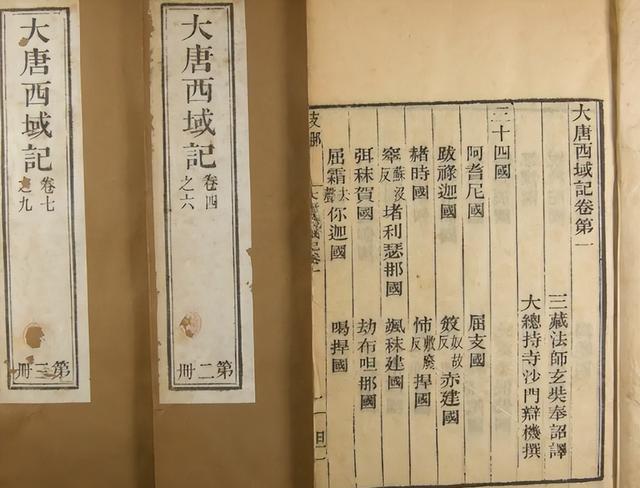 大唐西域記卷第一
三藏法師玄奘奉詔譯
大總持寺沙門辯機撰
三十四國
阿耆尼國 屈支國
跋祿迦國 笯奴故反赤建國
赭時國 㤄敷廢反捍國
窣蘇沒反堵利瑟那國 颯秣建國
弭秣賀國 劫布呾那國
屈霜去聲你迦國 喝捍國
大唐西域記 卷四之六
第二冊
大唐西域記 卷七之九
第三冊